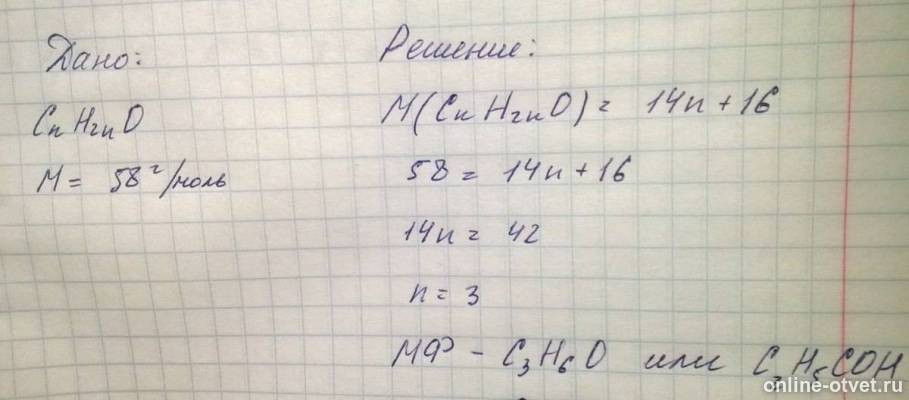 Дано:
CnH2nO
M = 58 г/моль
Решение:
M(CnH2nO) = 14n + 16
58 = 14n + 16
14n = 42
n = 3
МФ - C3H6O или C2H5COH
online-otvet.ru